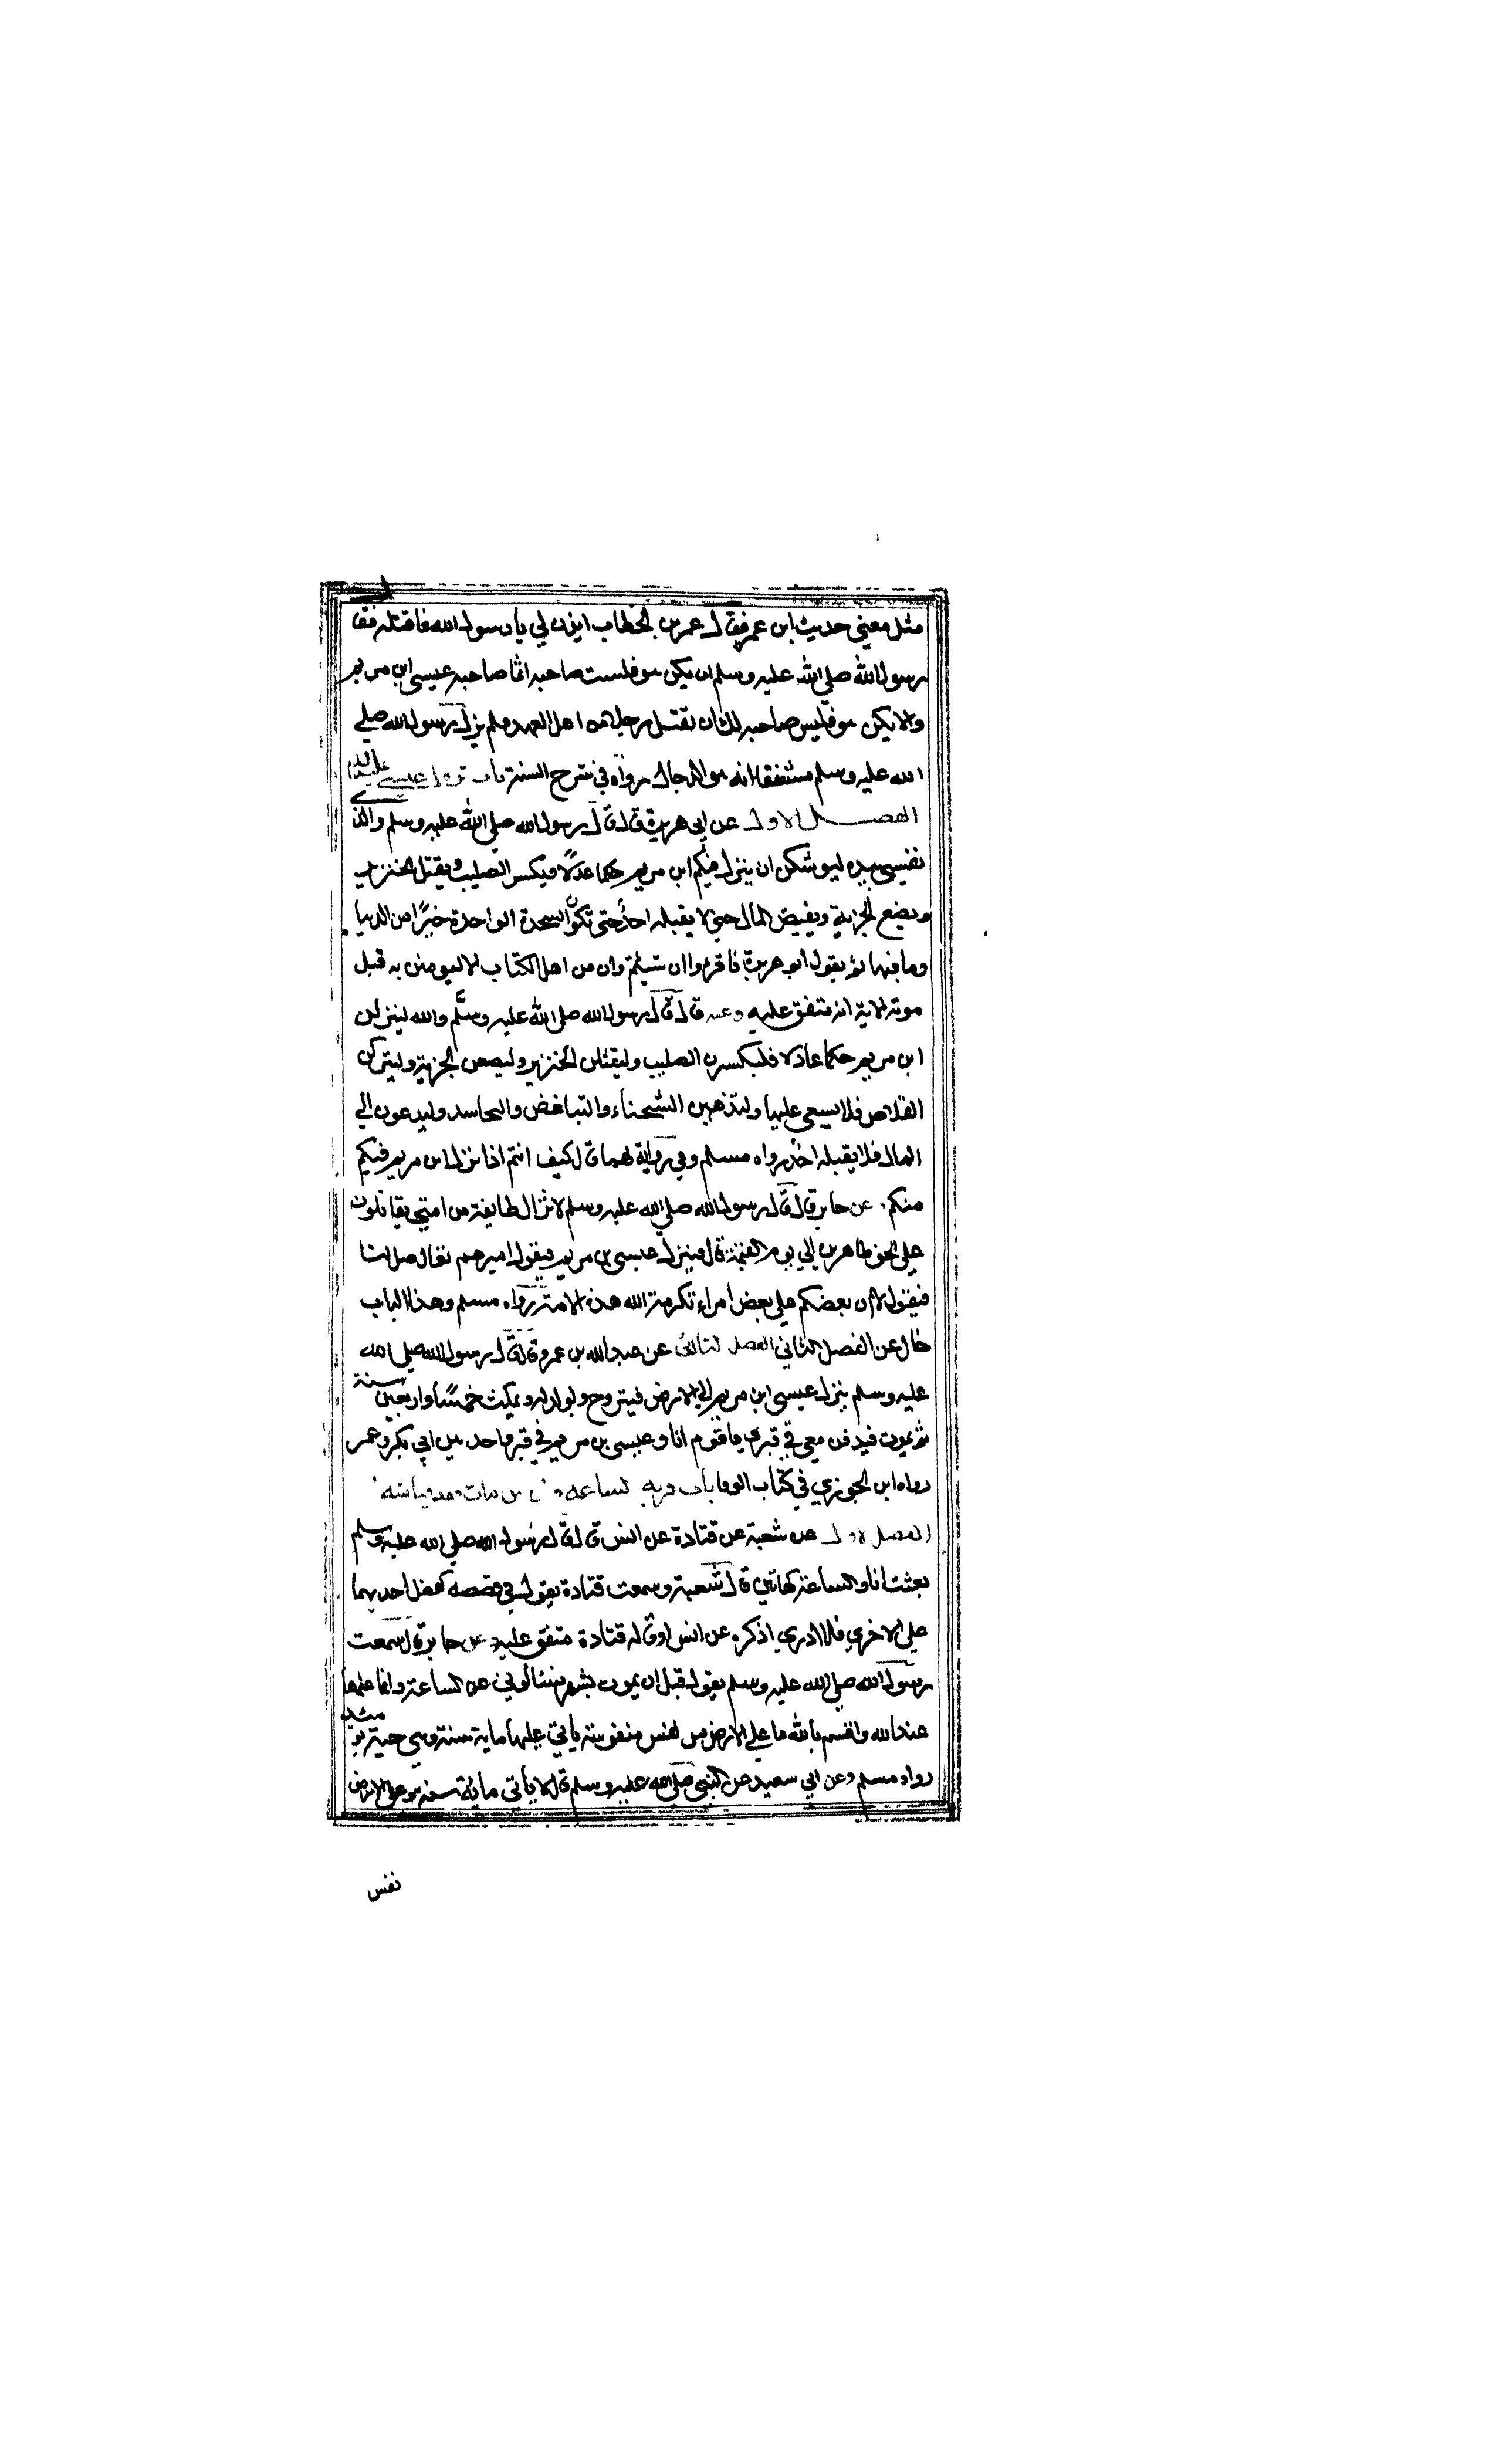 مثل معني حديث ابن عمر فقال عمر بن الخطاب ايذن لي يا رسول الله فاقتله فقا
رسول الله صلي الله عليه وسلم ان يكن هو فلست صاحبه انما صاحبه عيسى ابن مريم
والا يكن هو فليس صاحبه لك ان تقتل رجلا من اهل العهد فلم يزل رسول الله صلي
الله عليه وسلم مشفقا انه هو الدجال رواه في شرح السنة باب نزول عيسى عليه السلام
الفصل الاول عن ابي هريرة قال قال رسول الله صلي الله عليه وسلم والذي
نفسي بيده ليوشكن ان ينزل فيكم ابن مريم حكما عدلا فيكسر الصليب ويقتل الخنزير
ويضع الجزية ويفيض المال حتي لا يقبله احد حتى تكون السجدة الواحدة خيرا من الدنيا
وما فيها ثم يقول ابو هريرة فاقرءوا ان شيئتم وان من اهل الكتاب الا ليومنن به قبل
موته الاية متفق عليه وعنه قال قال رسول الله صلي الله عليه وسلم والله لينزلن
ابن مريم حكما عادلا فليكسرن الصليب وليقتلن الخنزير وليضعن الجزية وليتركن
القلاص فلا يسعي عليها ولتذهبن الشحناء والتباغض والتحاسد وليدعون الي
المال فلا يقبله احد رواه مسلم وفي رواية لهما قال كيف انتم اذا نزل ابن مريم فيكم
منكم عن جابر قال قال رسول الله صلي الله عليه وسلم لا تزال طايفة من امتي يقاتلون
علي الحق ظاهرين الي يوم القيمة قال فينزل عيسى بن مريم فيقول اميرهم تعال صل لنا
فيقول لا ان بعضكم علي بعض امراء تكرمة الله هذه الامة رواه مسلم وهذا الباب
خال عن الفصل الثاني الفصل الثالث عن عبد الله بن عمرو قال قال رسول الله صلي الله
عليه وسلم ينزل عيسى ابن مريم الي الارض فيتزوج ويولد له ويمكث خمسا واربعين سنة
ثم يموت فيدفن معي في قبري فاقوم انا وعيسى بن مريم في قبر واحد بين ابي بكر وعمر
رواه ابن الجوزي في كتاب الوفا باب قرب الساعة وان من مات فقد قامت قيامته
الفصل الاول عن شعبة عن قتادة عن انس قال قال رسول الله صلي الله عليه وسلم
بعثت انا والساعة كهاتين قال شعبة وسمعت قتادة يقول في قصصه كفضل احديهما
علي الاخري فلا ادري اذكره عن انس او قاله قتادة متفق عليه عن جابر قال سمعت
رسول الله صلي الله عليه وسلم يقول قبل ان يموت بشهر تسالوني عن الساعة وانما علمها
عند الله واقسم بالله ما علي الارض من نفس منفوسة ياتي عليها ماية سنة وهي حية يومئذ
رواه مسلم وعن ابي سعيد عن النبي صلي الله عليه وسلم قال لا ياتي مائة سنة وعلي الارض
نفس